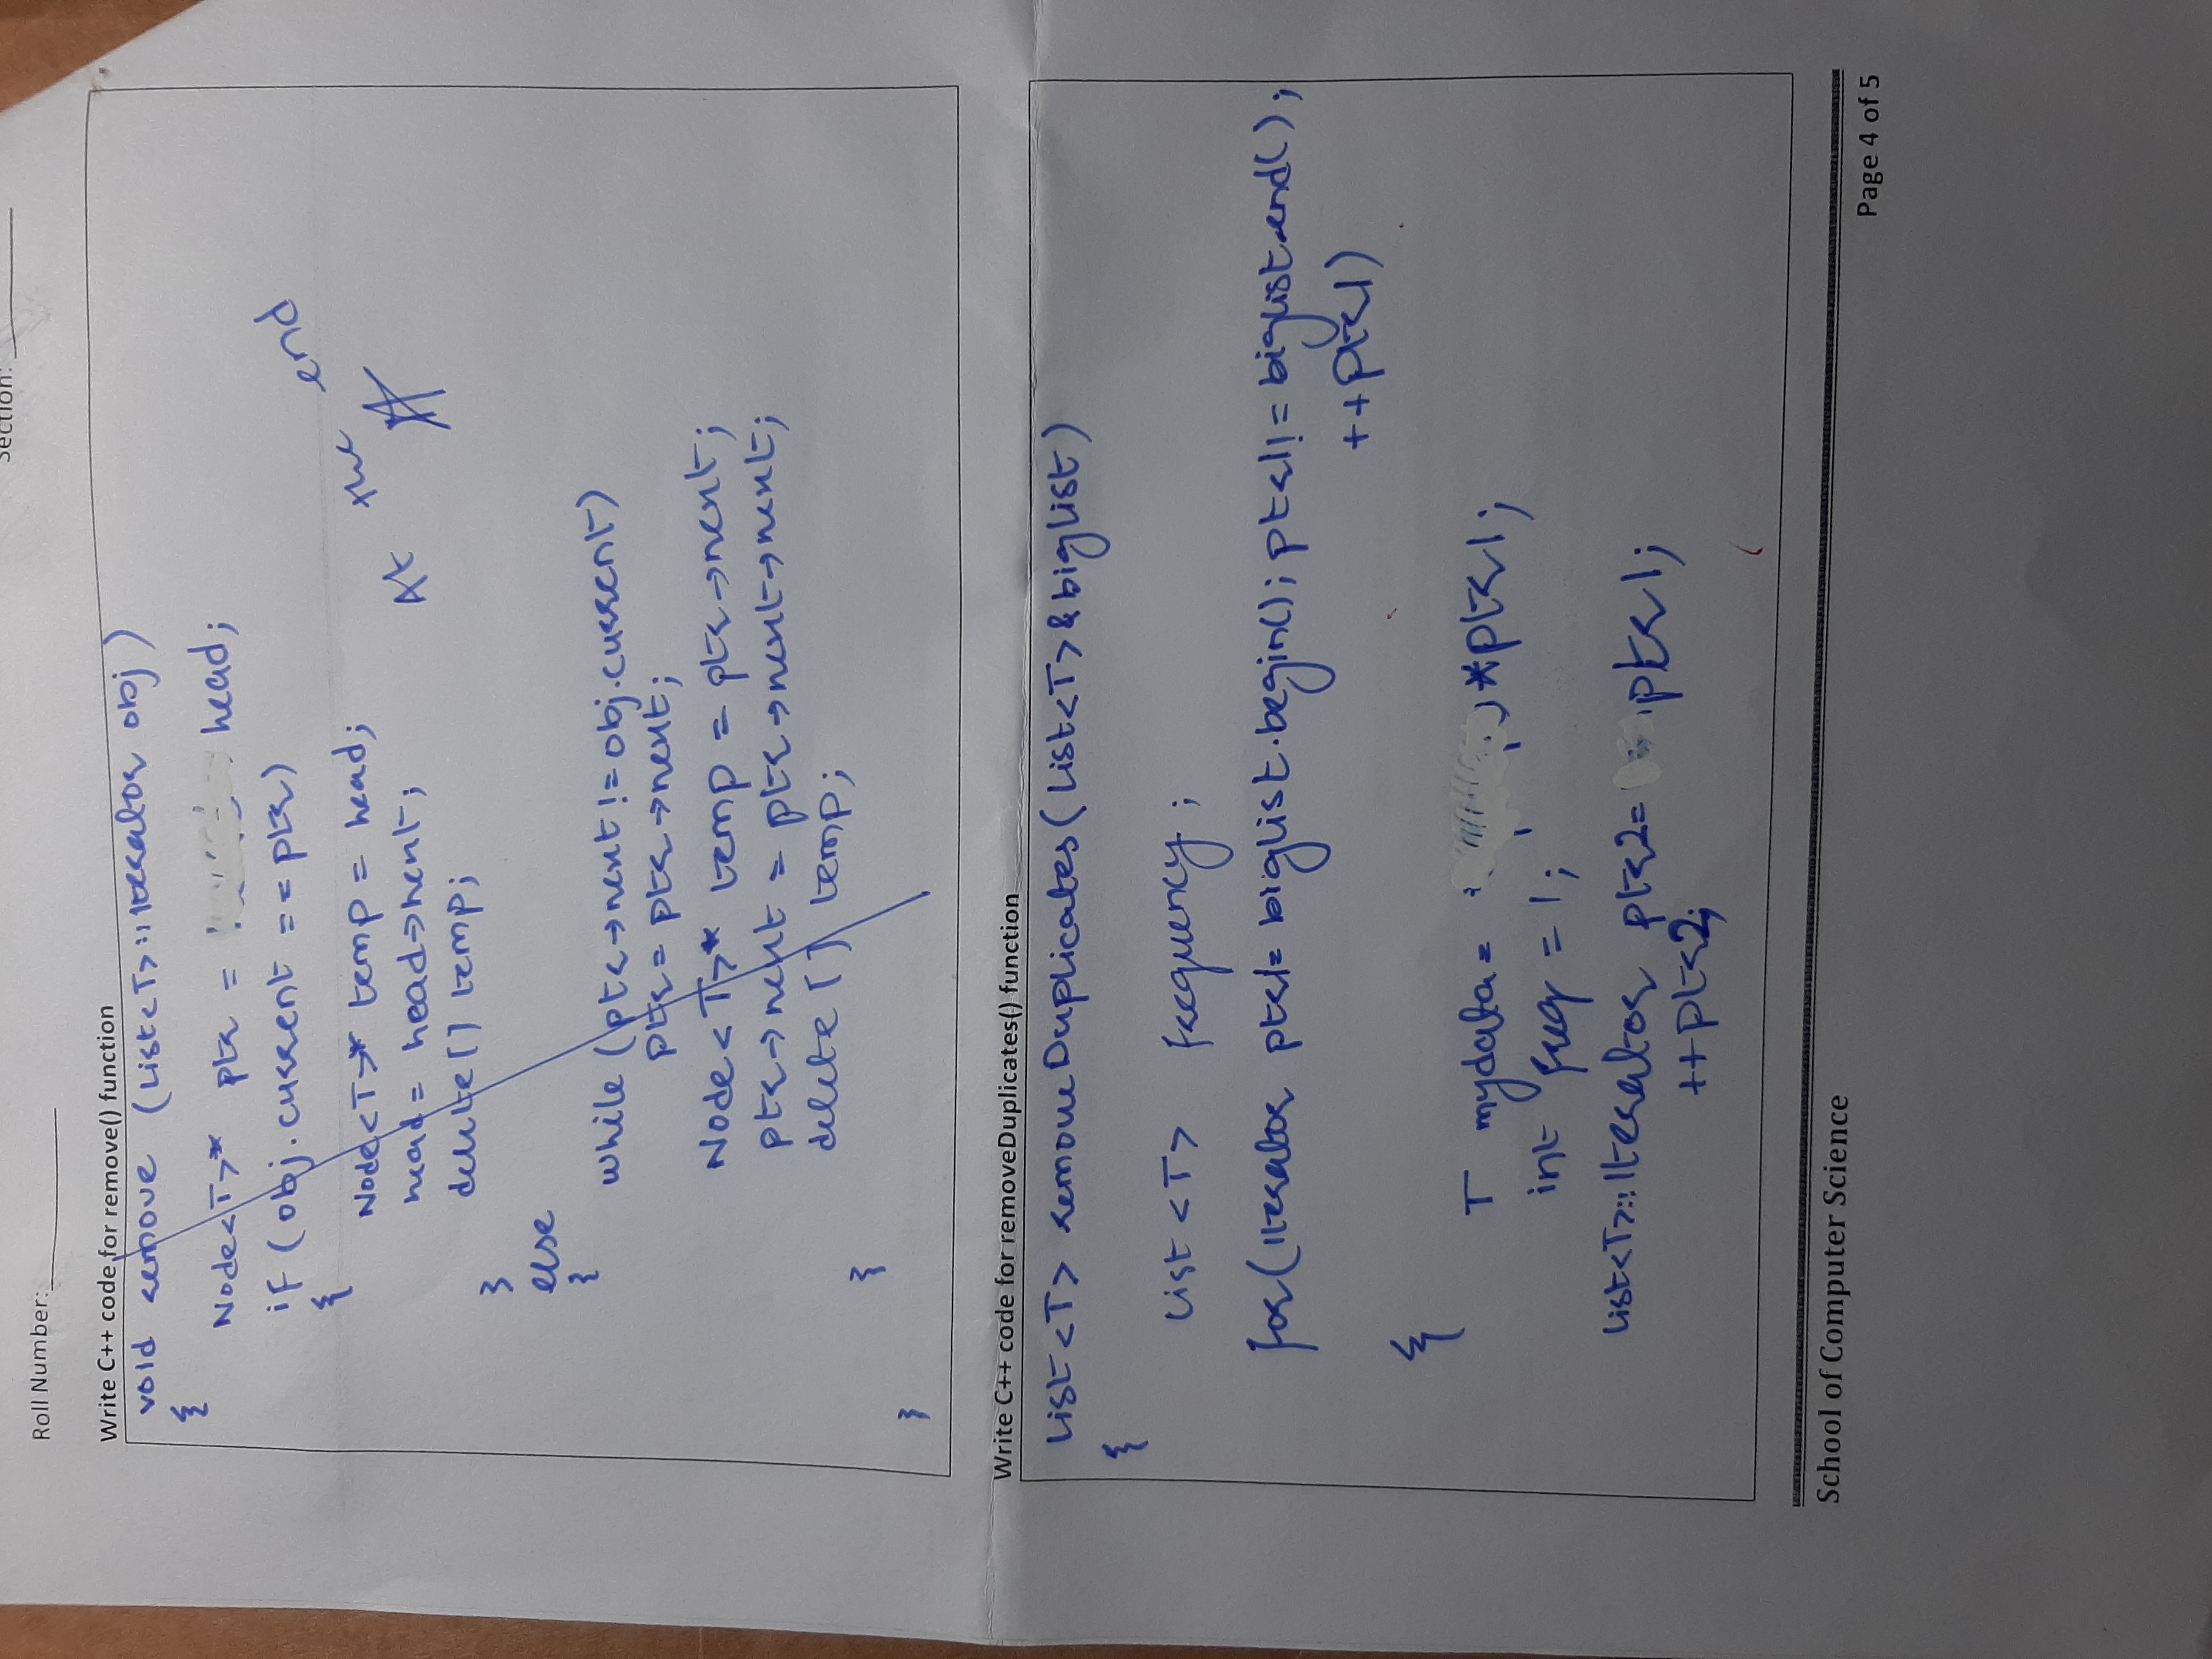 Section:
Roll Number:
Write C++ code for remove() function
void remove (List<T>::Iterator obj)
{
Node<T>* ptr = head;
if (obj.current == ptr)
{
Node<T>* temp = head;
head = head->next;
delete[] temp;
}
else
{
while (ptr->next != obj.current)
ptr = ptr->next;
Node<T>* temp = ptr->next;
ptr->next = ptr->next->next;
delete [] temp;
}
}
At the end
Write C++ code for removeDuplicates() function
List<T> removeDuplicates(List<T>&biglist)
{
List<T> frequency;
for(Iterator ptr1= biglist.begin(); ptr1!= biglist.end();
++ptr1)
{
T mydata= *ptr1;
int freq = 1;
List<T>::Iterator ptr2= ptr1;
++ptr2;
School of Computer Science
Page 4 of 5